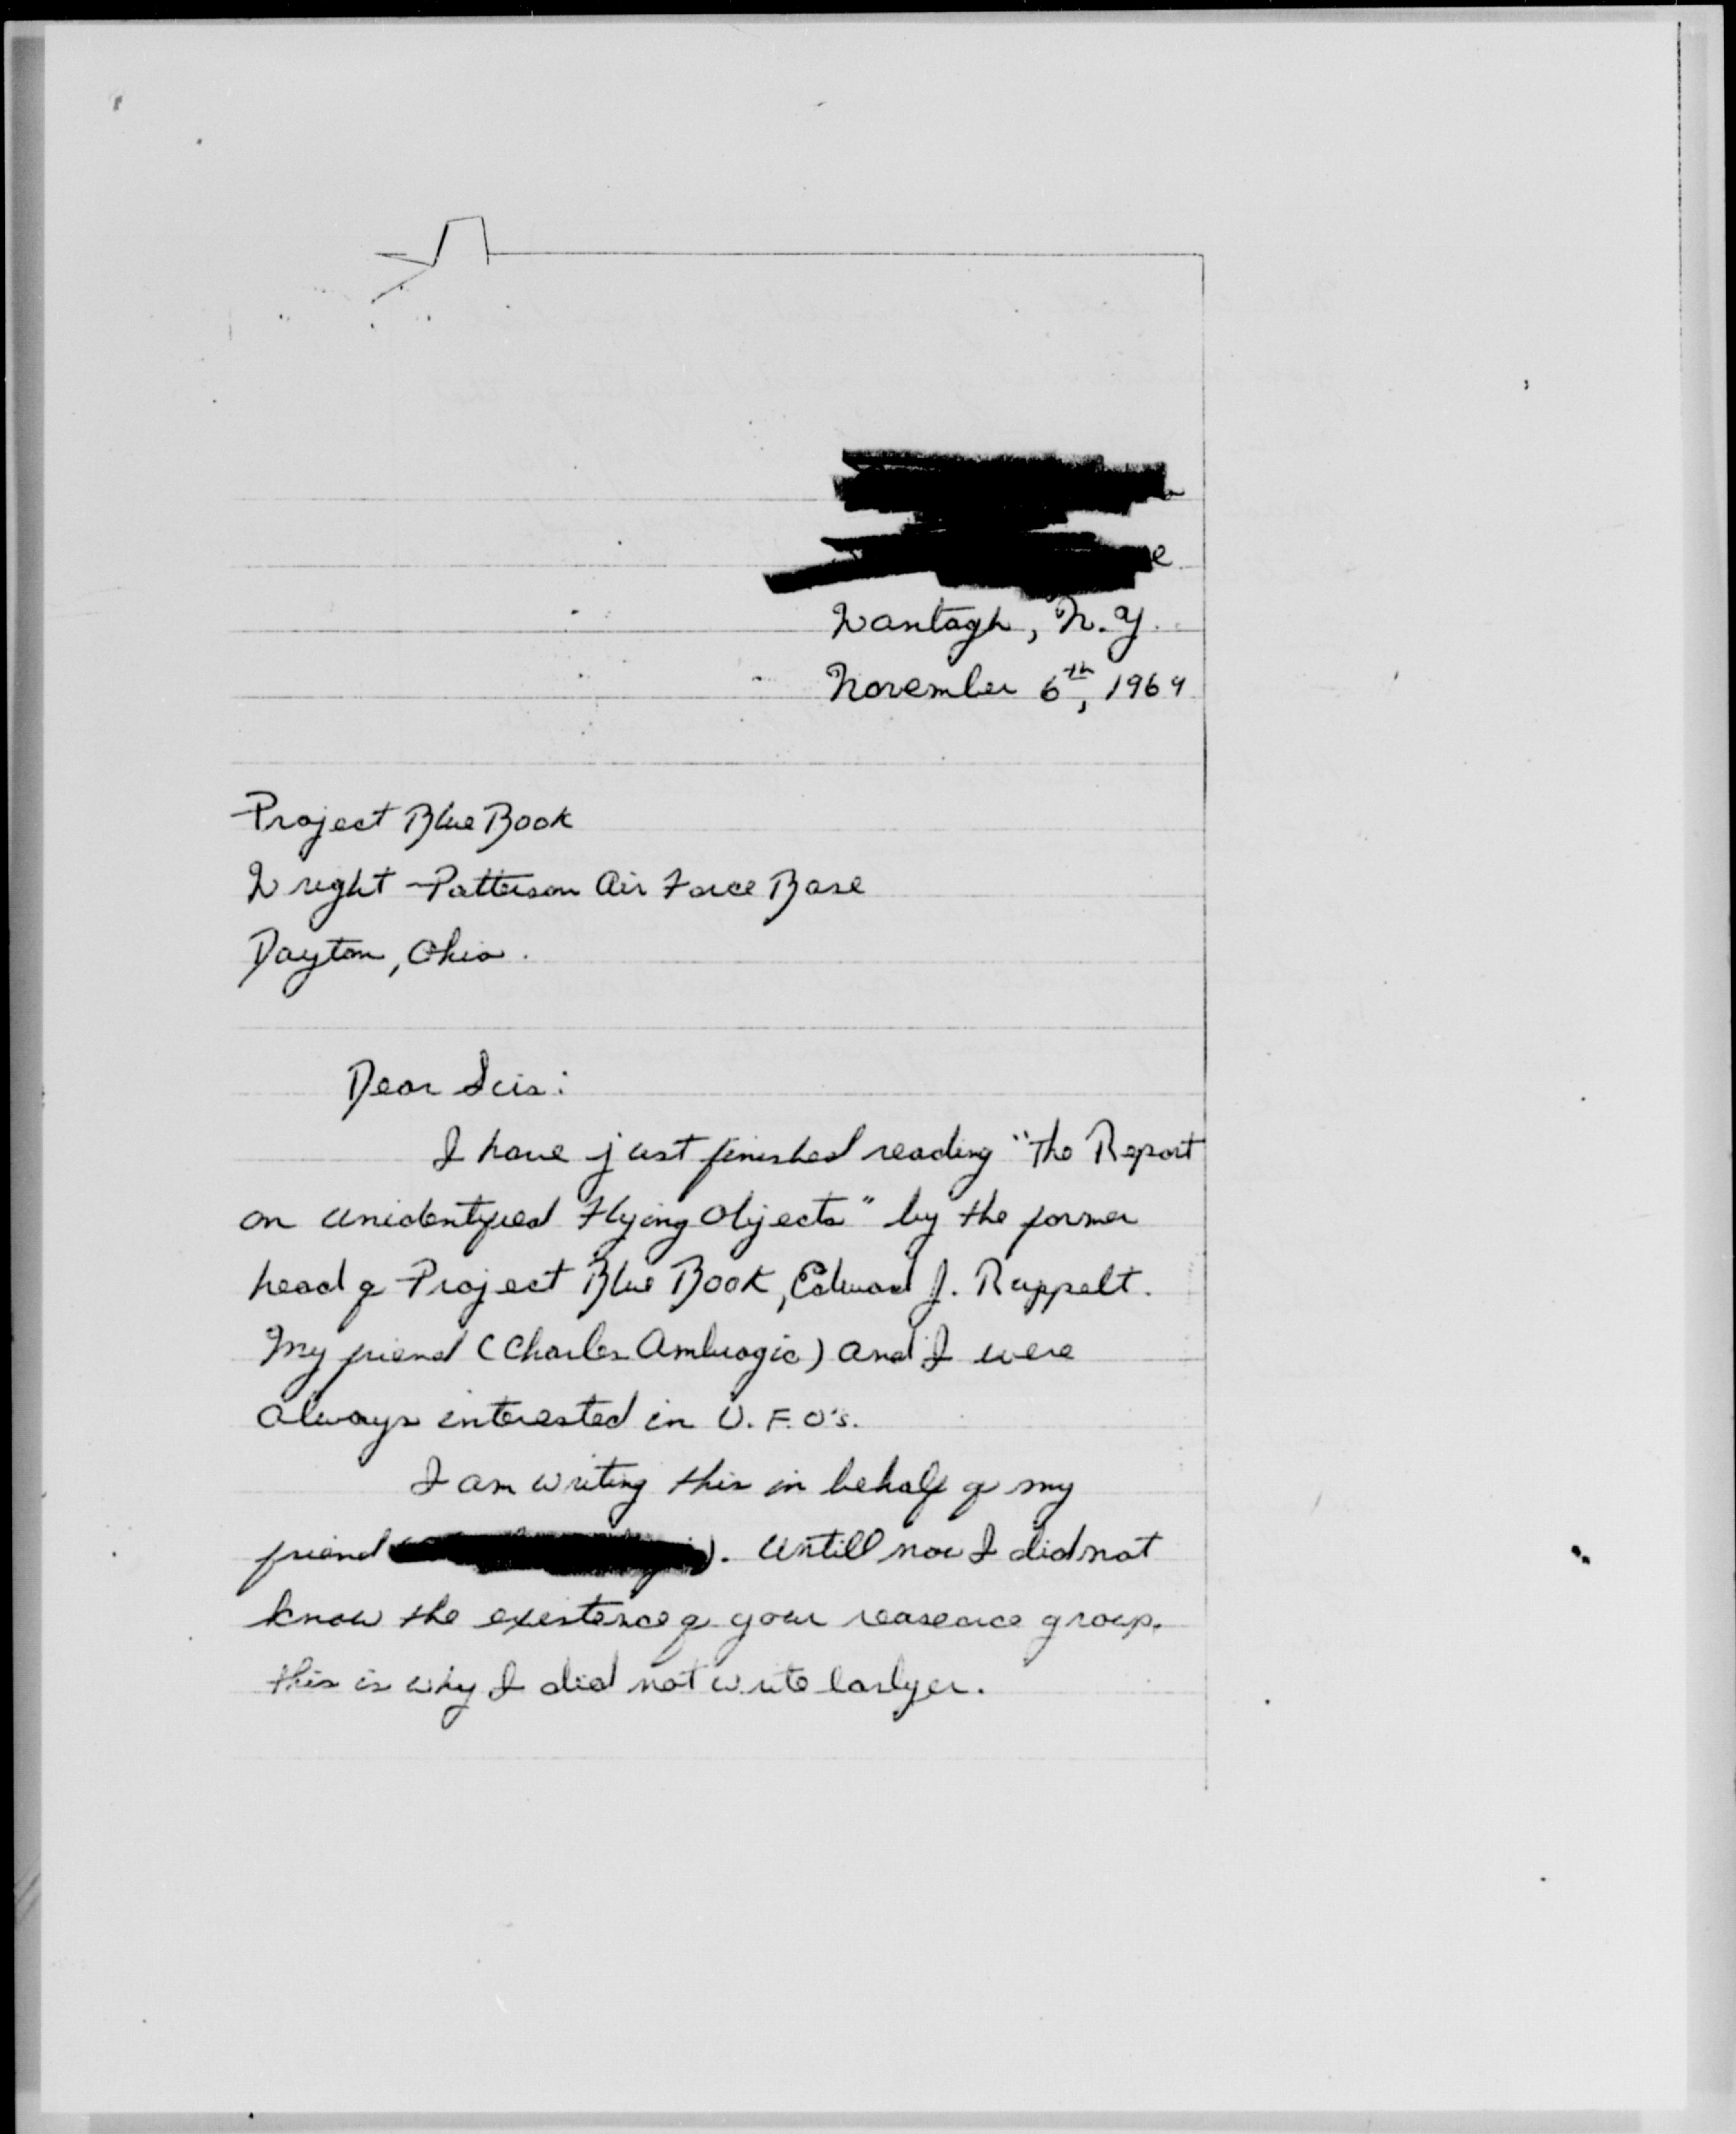 Wantagh, N.Y.
November 6th, 1969
Project Blue Book
Wright-Patterson Air Force Base
Dayton, Ohio.
Dear Sirs:
I have just finished reading "The Report
on Unidentified Flying Objects" by the former
head of Project Blue Book, Edward J. Ruppelt.
My friend (Charles Ambrogio) and I were
always interested in U.F.O's.
I am writing this in behalf of my
friend ). Untill now I did not
know the existence of your group.
this is why I did not write